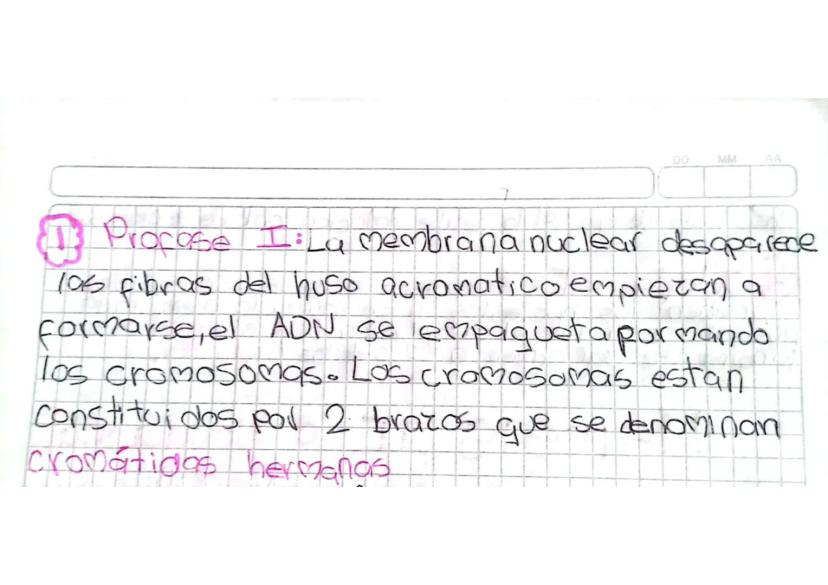 DD MM AA
1 Profase I: La membrana nuclear desaparece
las fibras del huso acromatico empiezan a
formarse, el ADN se empaqueta formando
los cromosomas. Los cromosomas estan
constituidos por 2 brazos que se denominan
cromátidas hermanas